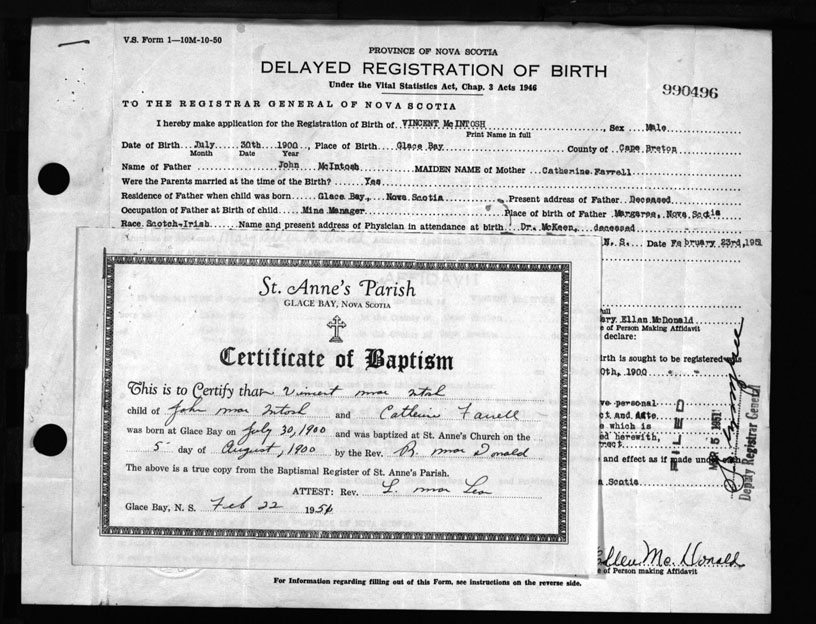 V.S. Form 1—10M-10-50
PROVINCE OF NOVA SCOTIA
DELAYED REGISTRATION OF BIRTH
Under the Vital Statistics Act, Chap. 3 Acts 1946
990496
TO THE REGISTRAR GENERAL OF NOVA SCOTIA
I hereby make application for the Registration of Birth of VINCENT McINTOSH, Sex Male
Print Name in full
Date of Birth July 30th 1900, Place of Birth Glace Bay County of Cape Breton
Month Date Year
Name of Father John McIntosh MAIDEN NAME of Mother Catherine Farrell
Were the Parents married at the time of the Birth? Yes
Residence of Father when child was born Glace Bay, Nova Scotia Present address of Father Deceased
Occupation of Father at Birth of child Mine Manager Place of birth of Father Margaree, Nova Scotia
Race Scotch-Irish Name and present address of Physician in attendance at birth Dr. McKeen, deceased
N. S. Date February 23rd, 1951
full
ary Ellan McDonald
e of Person Making Affidavit
declare:
irth is sought to be registered was
0th, 1900
ve personal
ct and date
e which is
ed herewith,
rrect
and effect as if made under
a Scotia
FILED
MAR 5 1951
Deputy Registrar General
Ellen McDonald
e of Person making Affidavit
St. Anne's Parish
GLACE BAY, NOVA SCOTIA
Certificate of Baptism
This is to Certify that Vincent Mac Intosh
child of John Mac Intosh and Catherine Farrell
was born at Glace Bay on July 30, 1900 and was baptized at St. Anne's Church on the
5 day of August, 1900 by the Rev. R. Mac Donald
The above is a true copy from the Baptismal Register of St. Anne's Parish.
ATTEST: Rev. L. Mac Lean
Glace Bay, N. S. Feb 22 1951
For Information regarding filling out of this Form, see instructions on the reverse side.